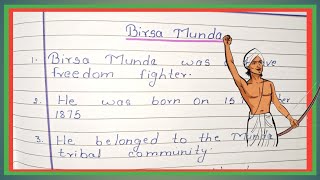 Birsa Munda
1. Birsa Munda was
freedom fighter.
2. He was born on 15
1875
3. He belonged to the Munda
tribal community.